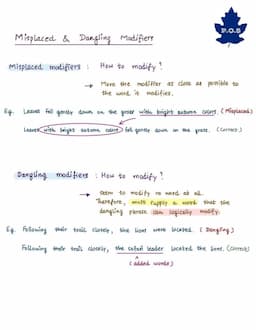 P.O.S
Misplaced & Dangling Modifiers
Misplaced modifiers : How to modify?
→ Move the modifier as close as possible to
the word it modifies.
Eg. Leaves fell gently down on the grass with bright autumn colors. (Misplaced)
Leaves with bright autumn colors fell gently down on the grass. (Correct)
Dangling modifiers : How to modify?
→ Seem to modify no word at all.
Therefore, must supply a word that the
dangling phrase can logically modify.
Eg. Following their trail closely, the lions were located. (Dangling)
Following their trail closely, the safari leader located the lions. (Correct)
(added words)